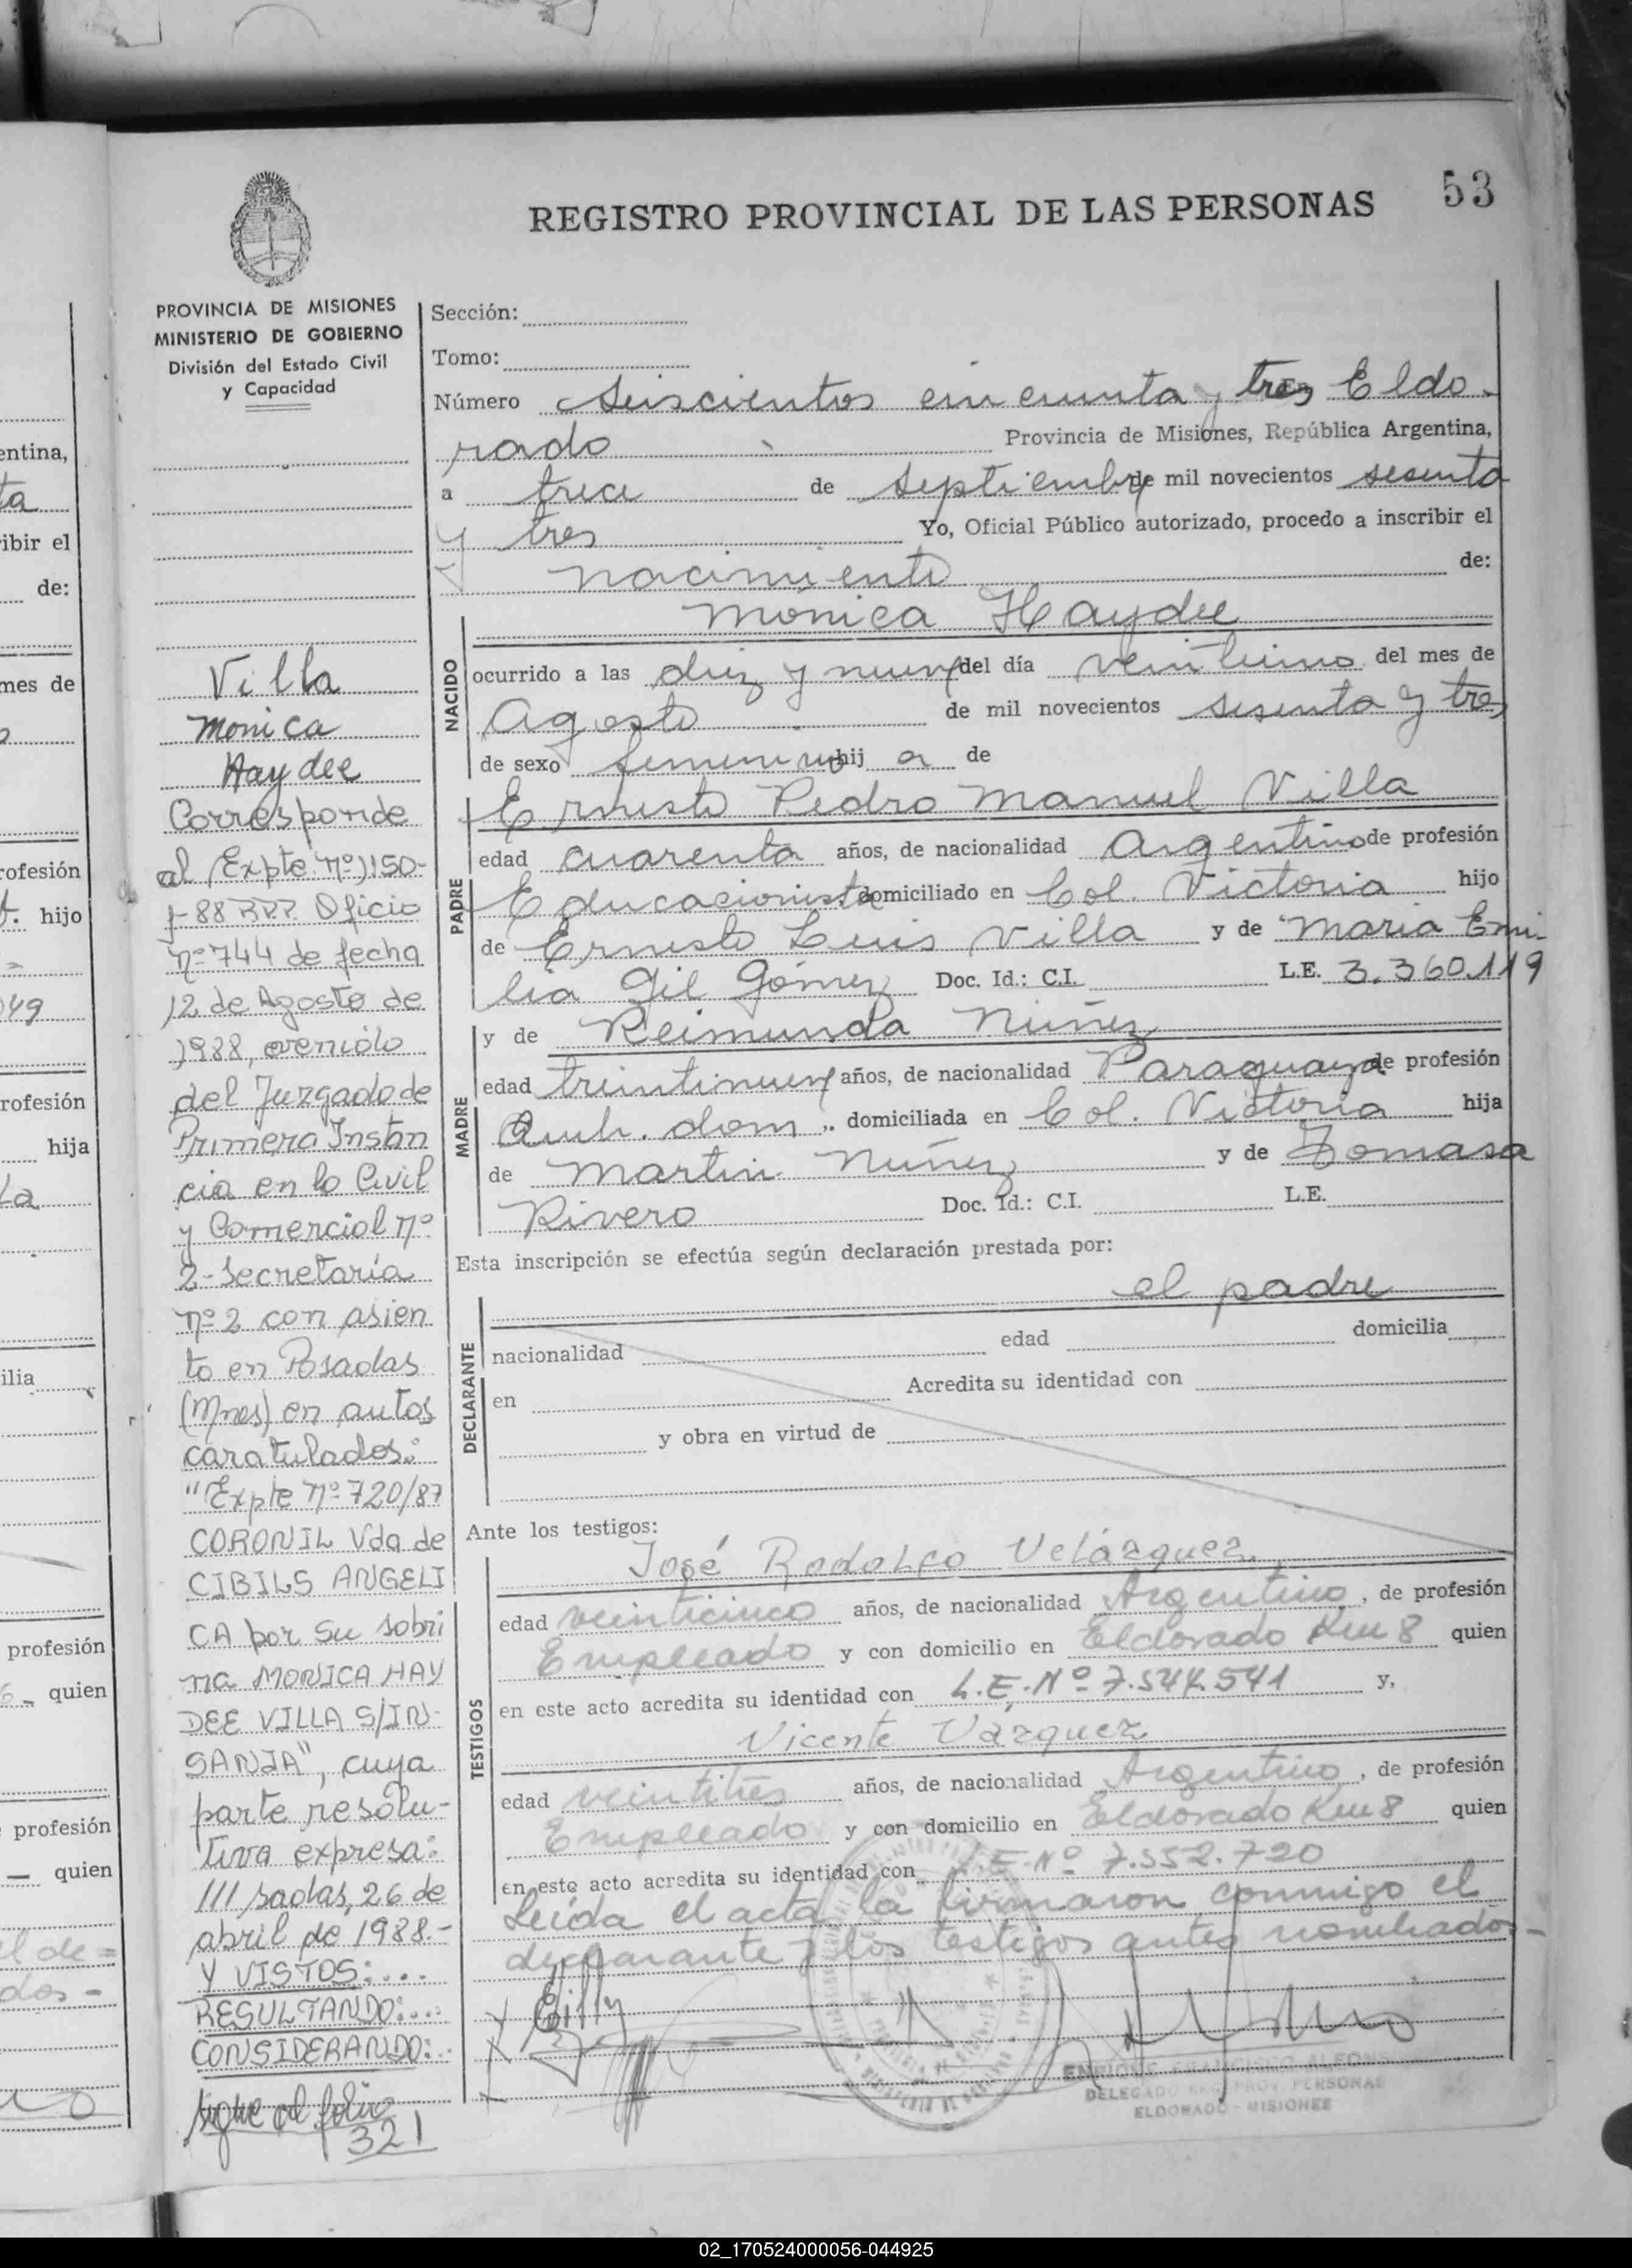 53
REGISTRO PROVINCIAL DE LAS PERSONAS
PROVINCIA DE MISIONES
MINISTERIO DE GOBIERNO
División del Estado Civil
y Capacidad
Villa
Monica
Haydee
Corresponde
al Expte. nº 1150-
f-88 RPP. Oficio
nº 744 de fecha
12 de Agosto de
1988, venido
del Juzgado de
Primera Instan
cia en lo Civil
y Comercial nº
2-Secretaría
nº 2 con asien
to en Posadas
(Mnes) en autos
caratulados:
"Expte nº 720/87
CORONIL Vda de
CIBILS ANGELI
CA por su sobri
na MONICA HAY
DEE VILLA S/IN-
SANIA", cuya
parte resolu-
tiva expresa:
///sadas, 26 de
abril de 1988.-
Y VISTOS:....
RESULTANDO:...
CONSIDERANDO:..
sigue al folio
321
Sección:
Tomo:
Número seiscientos cincuenta y tres Eldo-
rado Provincia de Misiones, República Argentina,
a trece de septiembre de mil novecientos sesenta
y tres Yo, Oficial Público autorizado, procedo a inscribir el
nacimiento de:
NACIDO
Mónica Haydee
ocurrido a las diez y nueve del día veintiuno del mes de
Agosto de mil novecientos sesenta y tres
de sexo femenino hij a de
PADRE
Ernesto Pedro Manuel Villa
edad cuarenta años, de nacionalidad Argentino de profesión
Educacionista domiciliado en Col. Victoria hijo
de Ernesto Luis Villa y de Maria Emi-
lia Gil Gómez Doc. Id.: C.I. L.E. 3.360.119
MADRE
y de Reimunda Núñez
edad treintinueve años, de nacionalidad Paraguaya de profesión
Queh. dom. domiciliada en Col. Victoria hija
de Martin Nuñez y de Tomasa
Rivero Doc. Id.: C.I. L.E.
Esta inscripción se efectúa según declaración prestada por:
DECLARANTE
el padre
nacionalidad edad domicilia
en Acredita su identidad con
y obra en virtud de
Ante los testigos:
TESTIGOS
José Rodolfo Velázquez
edad veinticinco años, de nacionalidad Argentino, de profesión
Empleado y con domicilio en Eldorado Km 8 quien
en este acto acredita su identidad con L.E. Nº 7.544.541 y,
Vicente Vázquez
edad veintitres años, de nacionalidad Argentino, de profesión
Empleado y con domicilio en Eldorado Km 8 quien
en este acto acredita su identidad con L.E. Nº 7.552.720
Leída el acta la firmaron conmigo el
declarante y los testigos antes nombrados.-
ENRIQUE FRANCISCO
DELEGADO REG. PROV. PERSONAS
ELDORADO - MISIONES
entina,
ta
ribir el
de:
mes de
rofesión
hijo
rofesión
hija
ilia
profesión
quien
profesión
quien
02_170524000056-044925